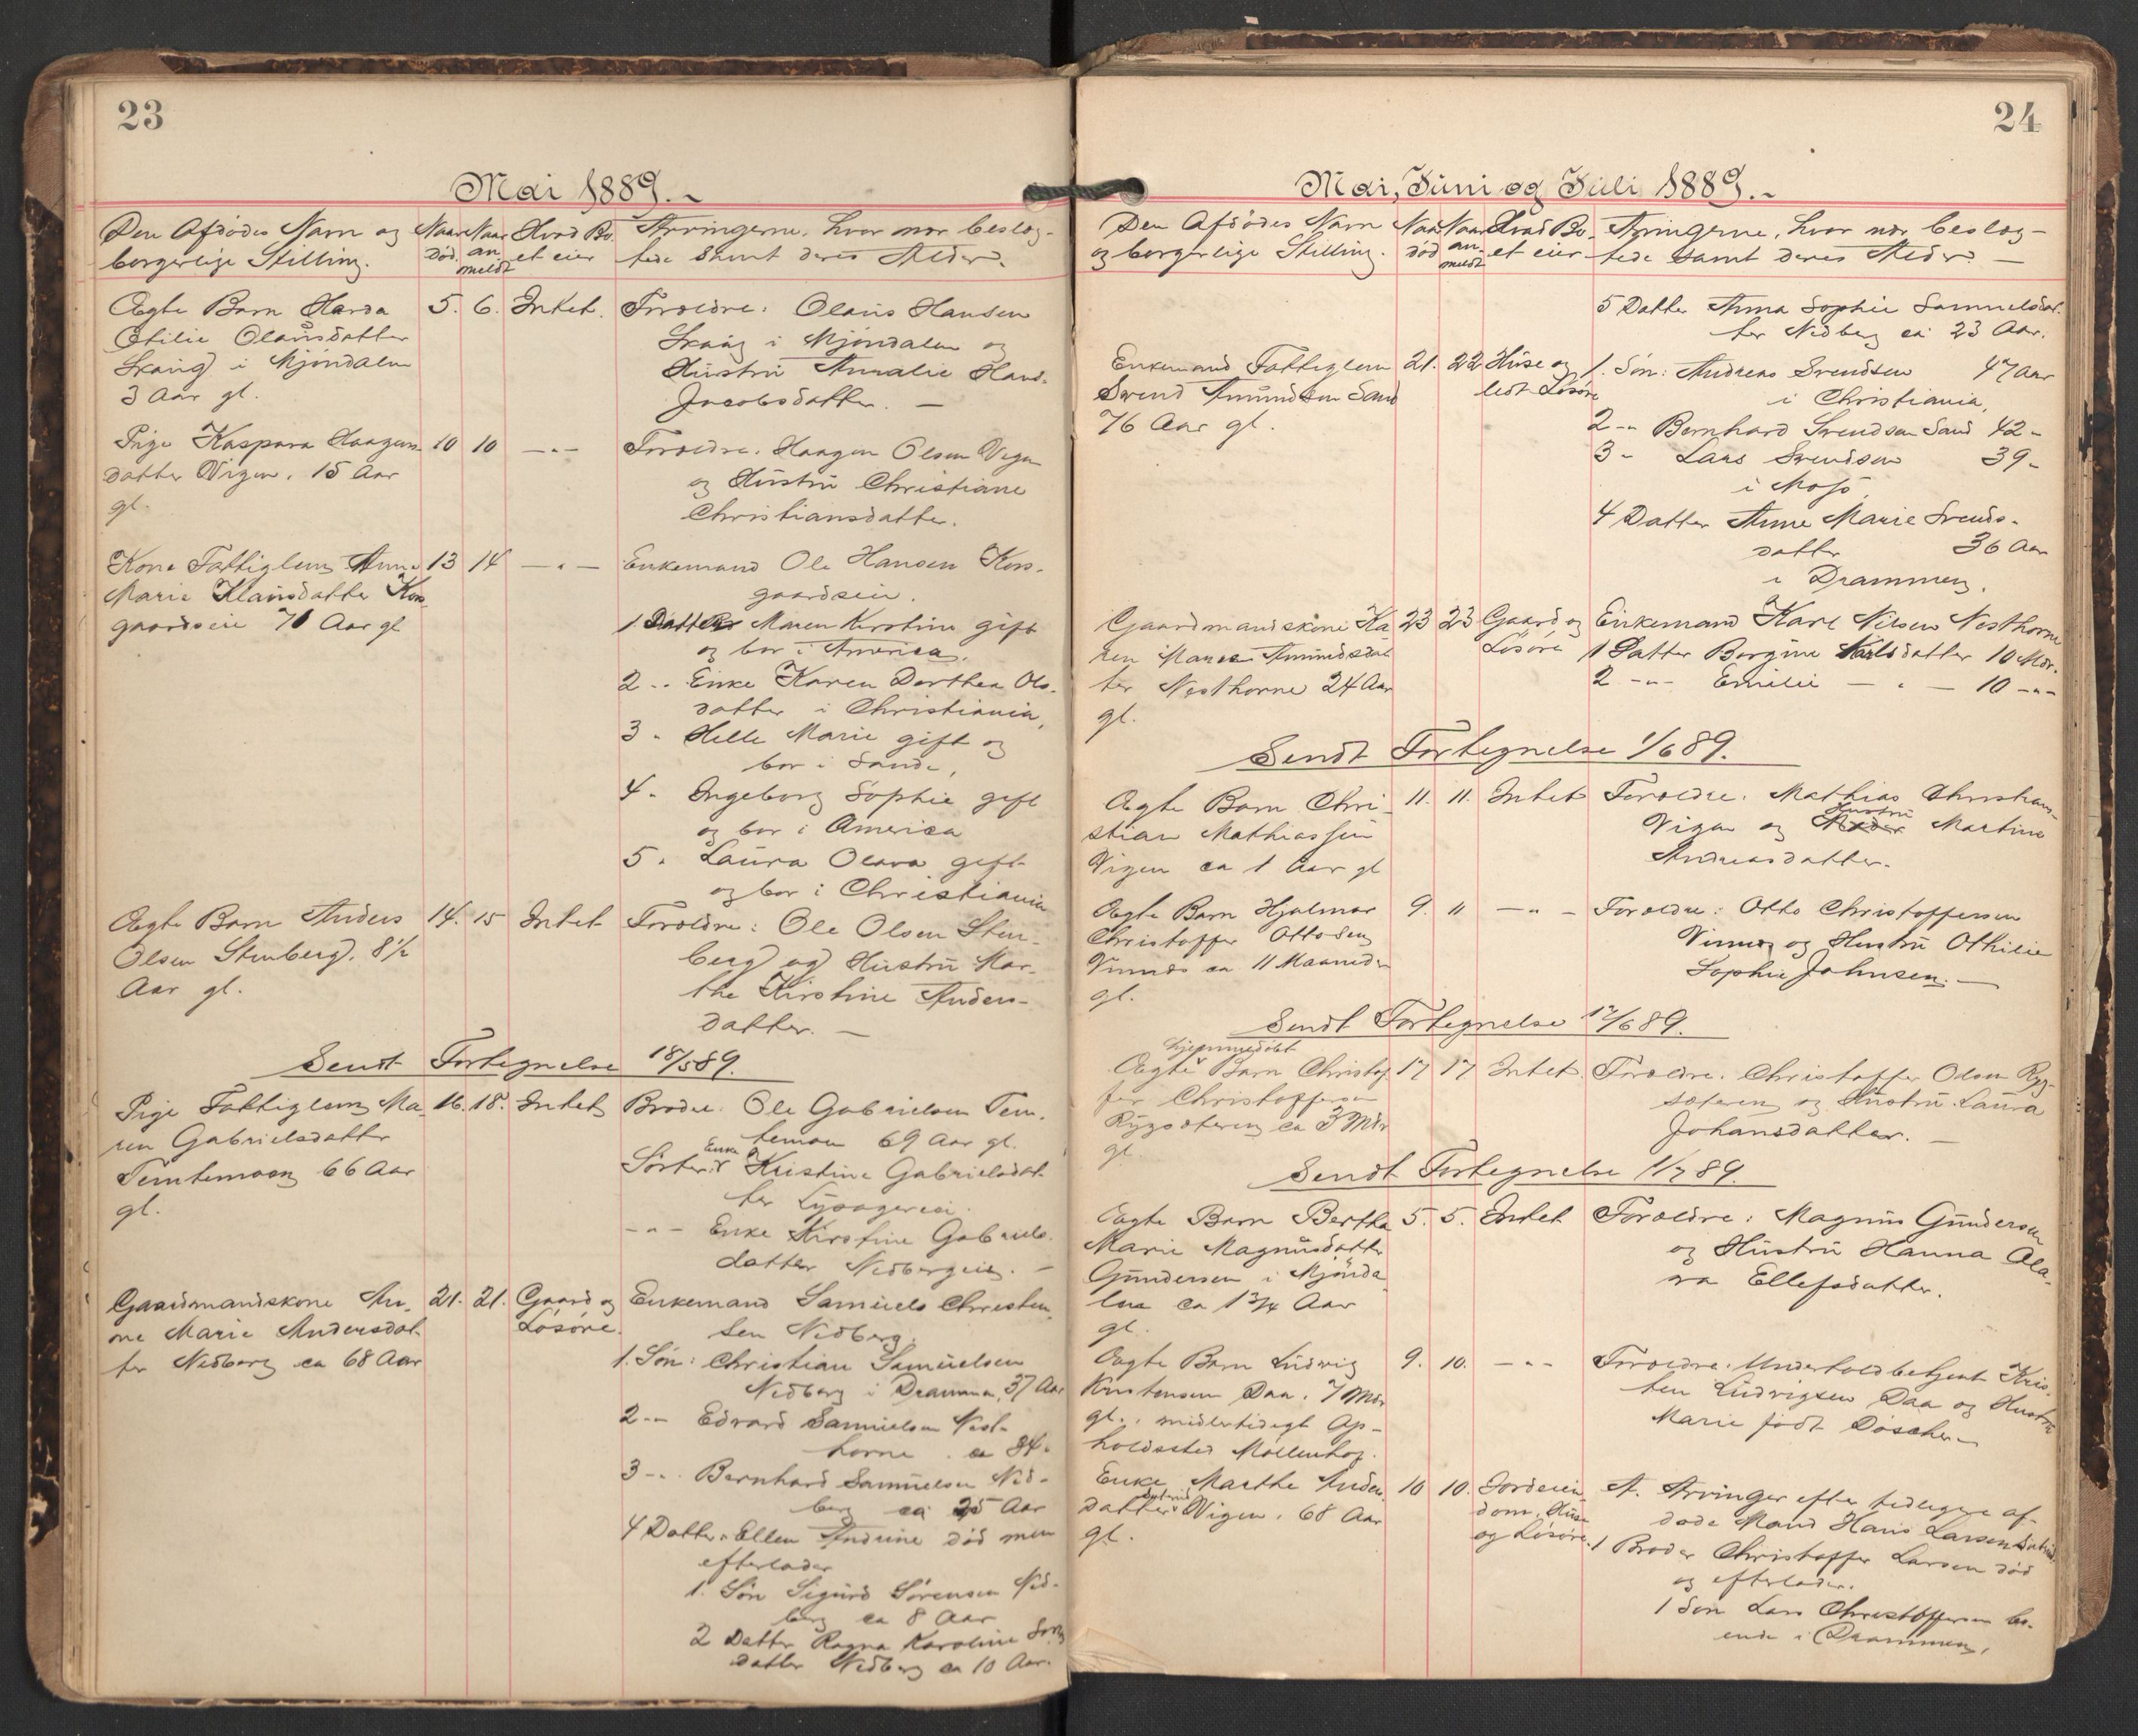 23
Mai 1889.-
Den Afdødes Navn og
borgerlige Stilling.
Naar
død.
Naar
an
meldt
Hvad Bo
et eier
Arvingerne, hvor nær beslæg-
tede samt deres Alder.
Ægte Barn Harda
Otilie Olausdatter
Skaug i Mjøndalen
3 Aar gl.
5. 6. Intet.
Forældre: Olaus Hansen
Skaug i Mjøndalen og
Hustru Amalie
Jacobsdatter. —
Pige Kaspara Haagens-
datter Vigen. 15 Aar
gl.
10 10 — „ —
Forældre. Haagen Olsen Vigen
og Hustru Christiane
Christiansdatter.
Kone Fattiglem Anne
Marie Klausdatter Kors
gaardseie 71 Aar gl
13 14 — „ —
Enkemand Ole Hansen Kors-
gaardseie.
1 Datter Maren Kirstine gift
og bor i America.
2 „ Enke Karen Dorthea Ols-
datter i Christiania,
3 „ Helle Marie gift og
bor i Sande,
4 „ Ingeborg Sophie gift
og bor i America
5 „ Laura Olava gift
og bor i Christiania
Ægte Barn Anders
Olsen Stenberg. 8½
Aar gl.
14. 15 Intet
Forældre: Ole Olsen Sten-
berg og Hustru Mar-
the Kirstine Anders-
datter. —
Sendt Fortegnelse 18/5 89.
Pige Fattiglem Ma-
ren Gabrielsdatter
Temtemoen 66 Aar
gl.
16. 18. Intet
Broder. Ole Gabrielsen Tem-
temoen 69 Aar gl.
Enke
Søster: Kristine Gabrielsdat-
ter
— „ — Enke Kirstine Gabriels-
datter Nedbergeie. —
Gaardmandskone An-
ne Marie Andersdat-
ter Nedberg ca 68 Aar
21. 21. Gaard og
Løsøre.
Enkemand Samuel Christen
sen Nedberg.
1. Søn: Christian Samuelsen
Nedberg i Drammen, 37 Aar
2 „ Edvard Samuelsen Nest-
horne . ca 34 „
3 „ Bernhard Samuelsen Ned-
berg ca 25 Aar
4 Datter. Ellen Andrine død men
efterlader
1. Søn Sigurd Sørensen Ned-
berg ca 8 Aar
2 Datter Ragna Karoline Sørens
datter Nedberg ca 10 Aar.
24
Mai, Juni og Juli 1889.-
Den Afdødes Navn
og borgerlige Stilling.
Naar
død
Naar
an
meldt
Hvad Bo-
et eier
Arvingerne, hvor nær beslæg-
tede samt deres Alder. —
5 Datter Anna Sophie Samuelsdat-
ter Nedberg ca 23 Aar.
Enkemand Fattiglem
Svend Amundsen Sand
76 Aar gl.
21. 22 Huse og
lidt Løsøre
1. Søn: Andreas Svendsen 47 Aar
i Christiania,
2 „ Bernhard Svendsen Sand 42 „
3 „ Lars Svendsen 39 „
i Moss,
4 Datter Anne Marie Svends-
datter 36 Aar
i Drammen.
Gaardmandskone Ka
ren Marie Amundsdat
ter Nesthorne 24 Aar
gl.
23 23 Gaard og
Løsøre
Enkemand Karl Nilsen Nesthorne
1 Datter Borgine Karlsdatter 10 Mdr.
2 — „ — Emilie — „ — 10 — „ —
Sendt Fortegnelse 1/6 89.
Ægte Barn Chri-
stian Mathiassen
Vigen ca 1 Aar gl
11. 11. Intet
Forældre. Mathias Christians-
Hustru
Vigen og Moder Martine
Andreasdatter.
Ægte Barn Hjalmar
Christoffer Ottosen
Vinnes ca 11 Maaneder
gl.
9. 11 — „ —
Forældre: Otto Christoffersen
Vinnes og Hustru Othilie
Sophie Johnsen. —
Sendt Fortegnelse 12/6 89.
hjemmedøbt
Ægte Barn Christof
fer Christoffersen
ca 3 Mdr
gl.
17 17 Intet.
Forældre. Christoffer Olsen Ryg-
og Hustru Laura
Johansdatter. —
Sendt Fortegnelse 1/7 89.
Ægte Barn Bertha
Marie Magnusdatter
Gundersen i Mjønda
len ca 1 3/4 Aar
gl.
5. 5. Intet
Forældre: Magnus Gundersen
og Hustru Hanna Ola-
va Ellefsdatter.
Ægte Barn Ludvig
Kristensen Daa. 7 Mdr
gl., midlertidigt Op-
holdssted Møllenhof.
9. 10. — „ —
Forældre. Underholdbetjent Kris-
ten Ludvigsen Daa og Hustru
Marie født Døscher
Enke Marthe Anders
datter Vigen. 68 Aar
gl.
10 10. Jordeien-
dom, Huse
og Løsøre.
A. Arvinger efter tidligere af-
døde Mand Hans Larsen
1 Broder Christoffer Larsen død
og efterlader.
1 Søn Lars Christoffersen bo-
ende i Drammen,